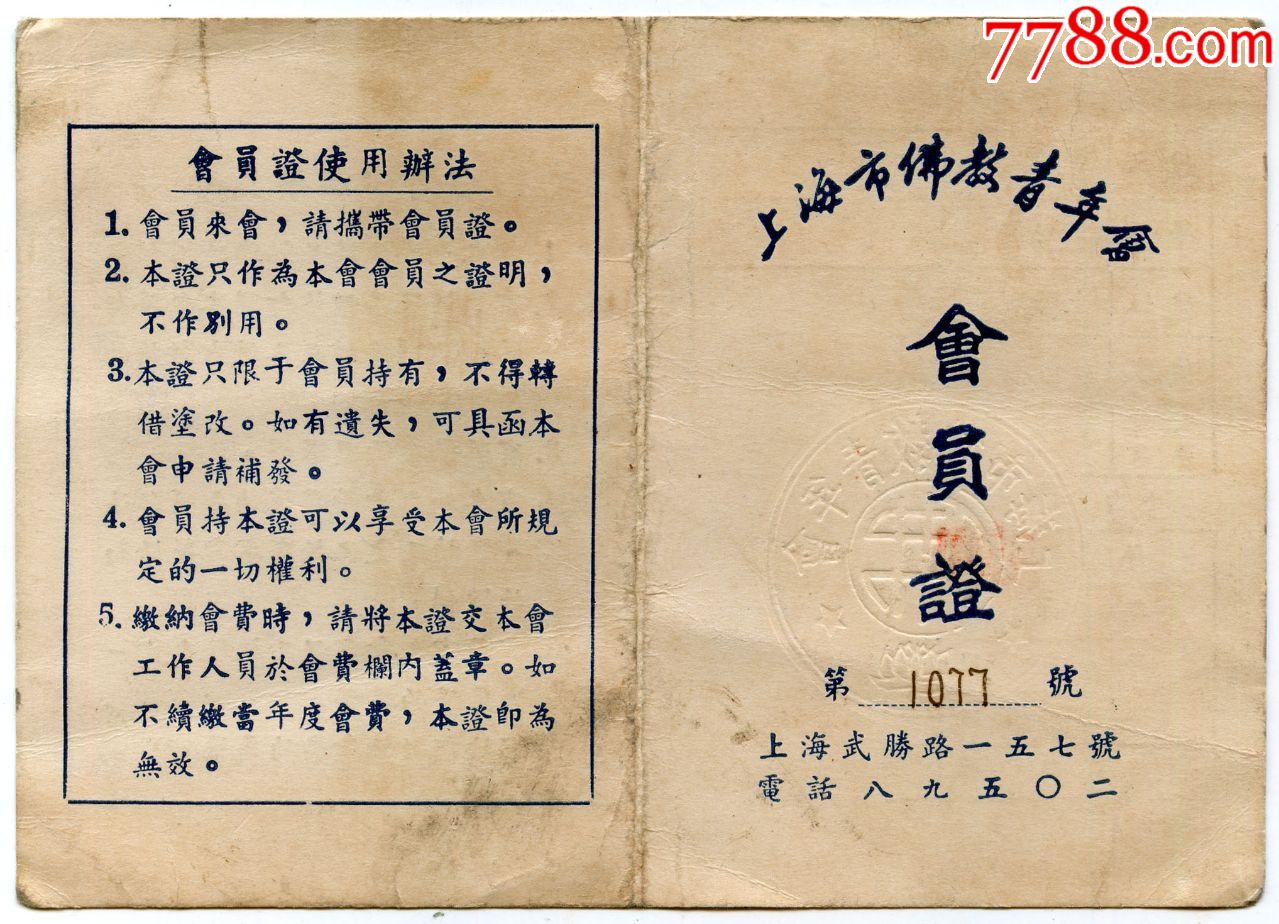 7788.com
會員證使用辦法
1. 會員來會，請攜帶會員證。
2. 本證只作為本會會員之證明，
不作別用。
3. 本證只限于會員持有，不得轉
借塗改。如有遺失，可具函本
會申請補發。
4. 會員持本證可以享受本會所規
定的一切權利。
5. 繳納會費時，請將本證交本會
工作人員於會費欄內蓋章。如
不續繳當年度會費，本證即為
無效。
上海市佛教青年會
會員證
第 1077 號
上海武勝路一五七號
電話八九五〇二